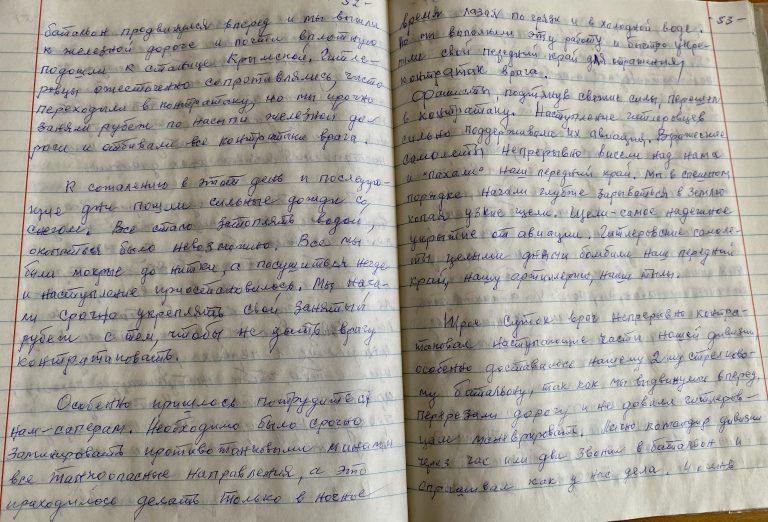 - 52 -
батальон продвинулся вперед и мы вышли
к железной дороге и почти вплотную
подошли к станице Крымской. Гитле-
ровцы ожесточенно сопротивлялись, часто
переходили в контратаку, но мы прочно
заняли рубеж по насыпи железной до-
роги и отбивали все контратаки врага.
К сожалению в этот день и последую-
щие дни пошли сильные дожди со
снегом. Все стало затоплять водой,
окопаться было невозможно. Все мы
были мокрые до нитки, а посушиться негде
и наступление приостановилось. Мы нача-
ли срочно укреплять свой занятый
рубеж с тем, чтобы не дать врагу
контратаковать.
Особенно пришлось потрудиться
нам-саперам. Необходимо было срочно
заминировать противотанковыми минами
все танкоопасные направления, а это
приходилось делать только в ночное
- 53 -
время лазая по грязи и в холодной воде.
Но мы выполнили эту работу и быстро укре-
пили свой передний край для отражения
контратак врага.
Фашисты, подтянув свежие силы, перешли
в контратаку. Наступление гитлеровцев
сильно поддерживала их авиация. Вражеские
самолеты непрерывно висели над нами
и "пахали" наш передний край. Мы в спешном
порядке начали глубже зарываться в землю
копали узкие щели. Щели-самое надежное
укрытие от авиации. Гитлеровские самоле-
ты целыми днями бомбили наш передний
край, нашу артиллерию, наши тылы.
Трое суток враг непрерывно контра-
таковал наступающие части нашей дивизии
особенно доставалось нашему 2-му стрелково-
му батальону, так как мы выдвинулись вперед,
перерезали дорогу и не давали гитлеров-
цам маневрировать. Лично командир дивизии
через час или два звонил в батальон и
спрашивал как у нас дела.